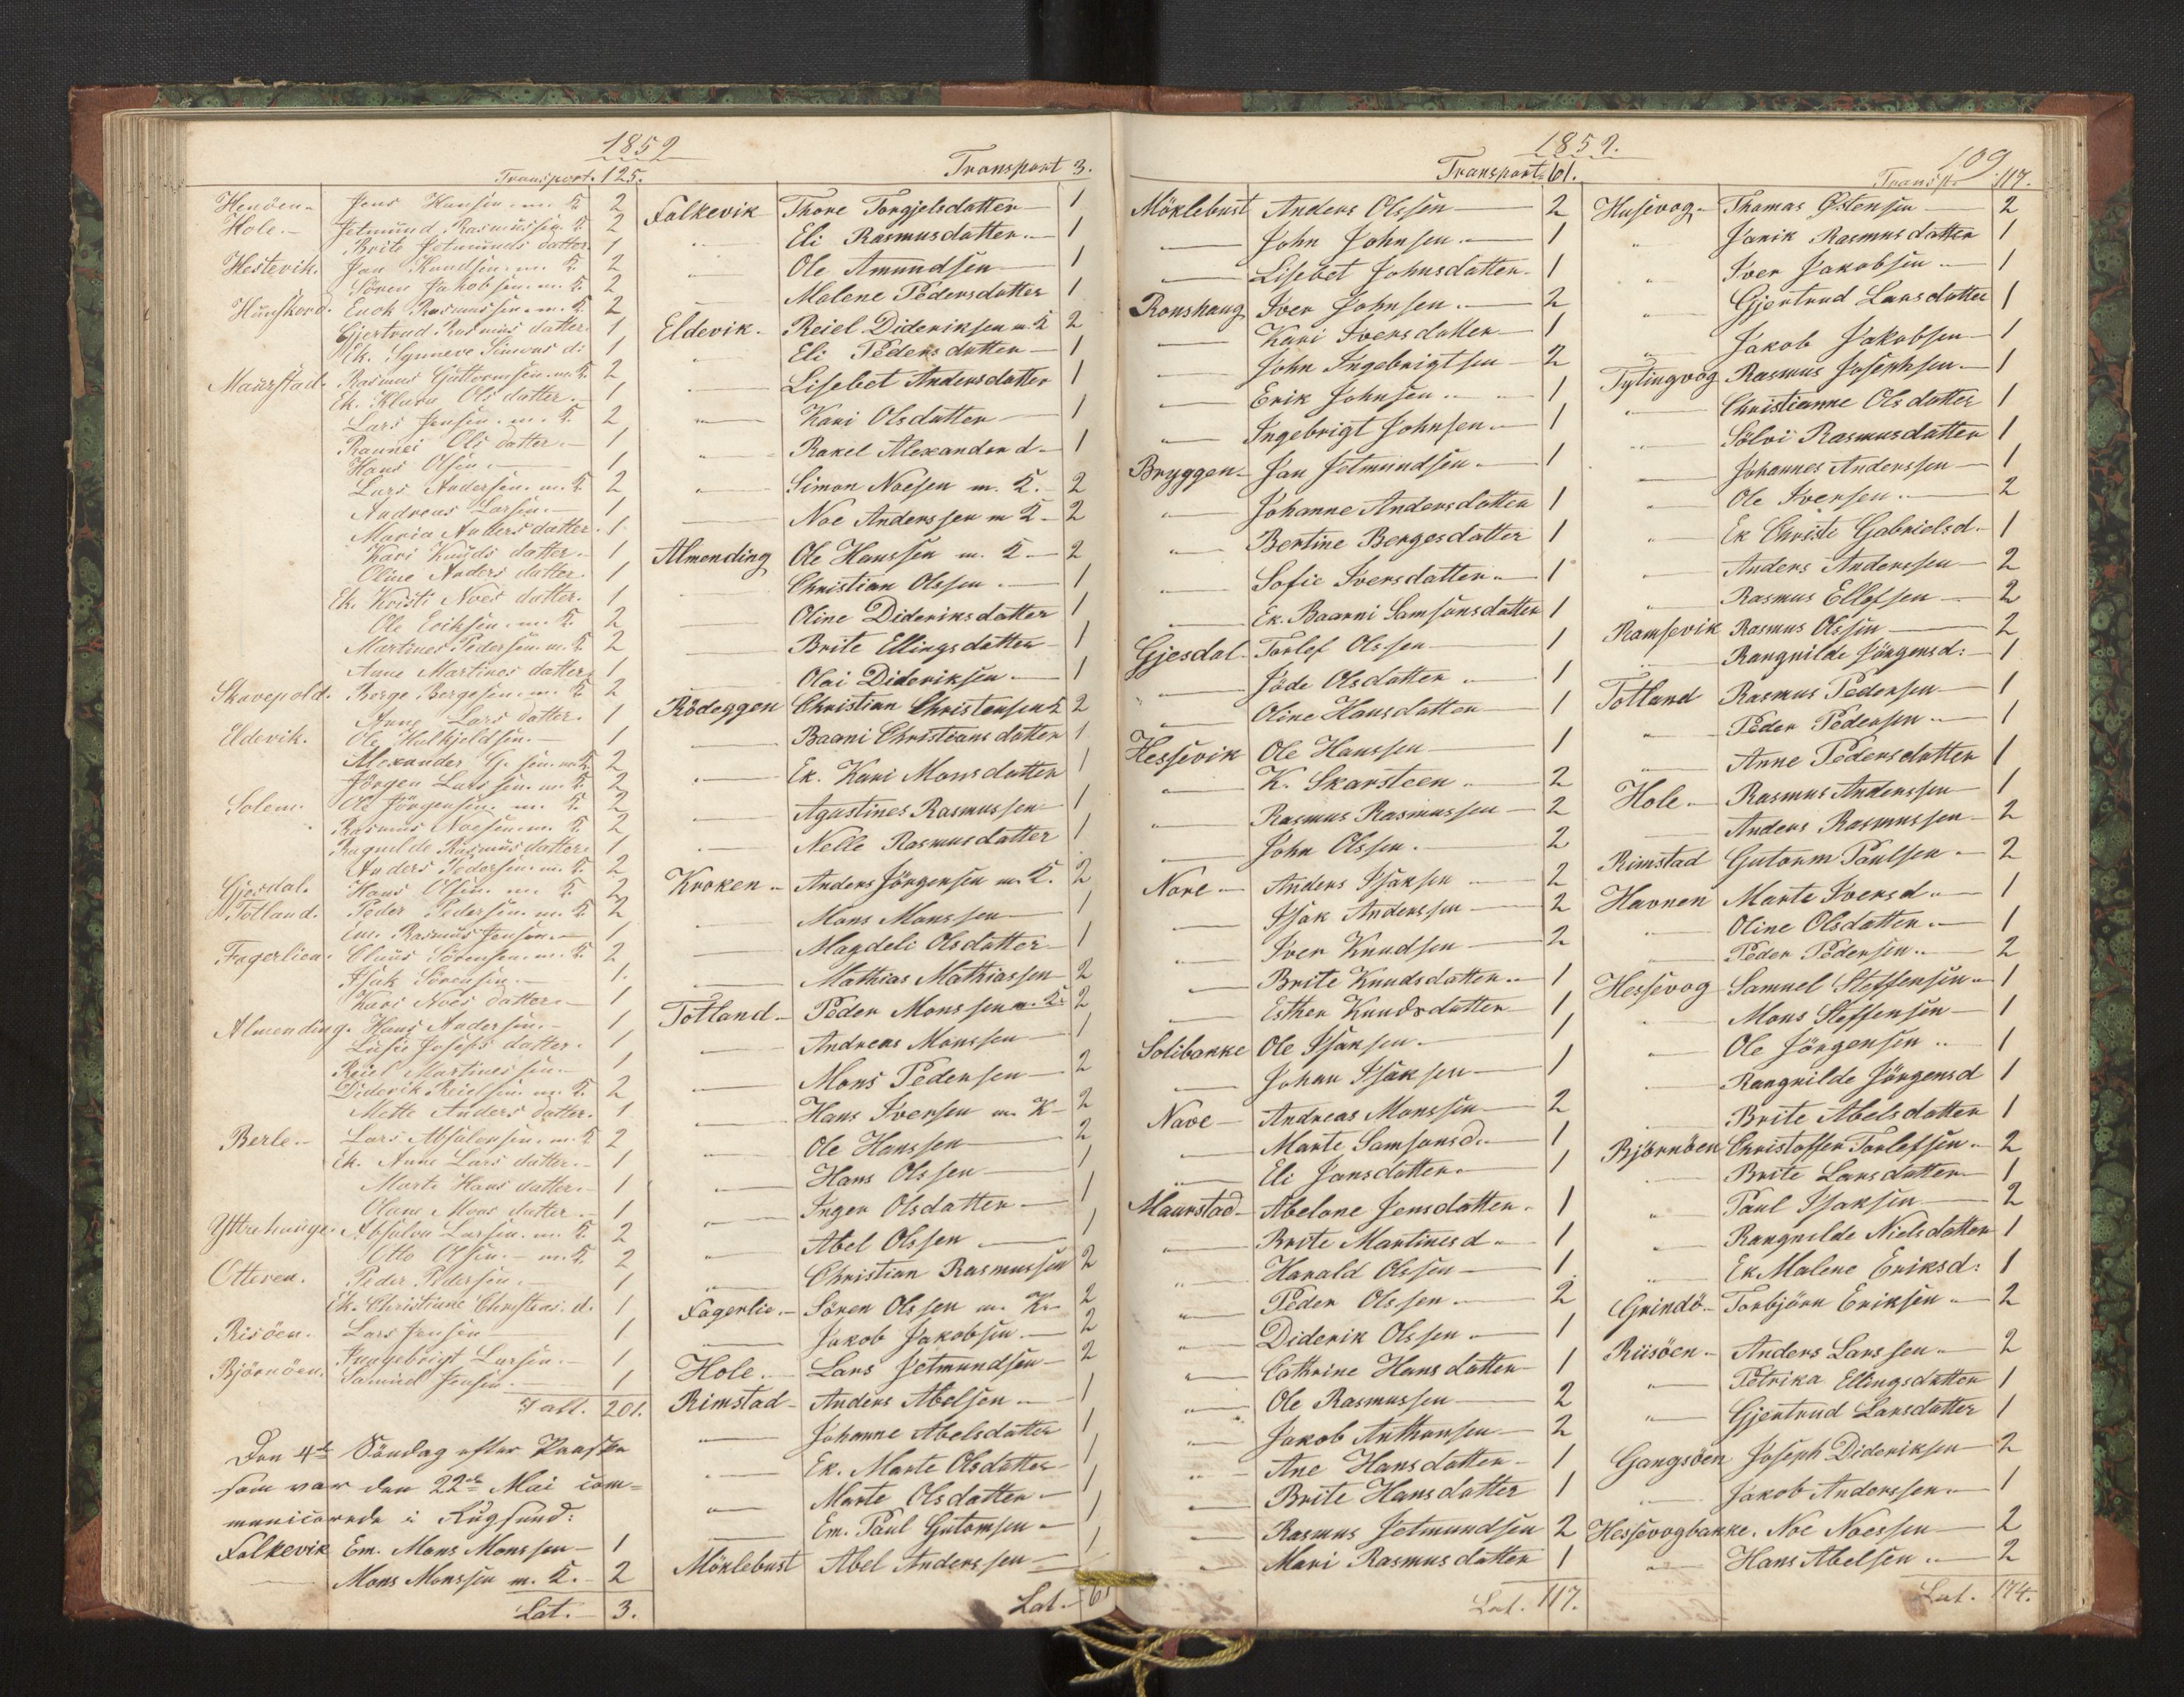 1852
Transport. 125.
Hole. Jetmund Rasmussen. m. K. 2
Brite Jetmunds datter. 1
Hestevik. Jan Knudsen. m. K. 2
Sören Jakobsen. m. K. 2
Enok Rasmussen. m. K. 2
Gjertrud Rasmus datter. 1
Ek. Synneve Simons d: 1
Maurstad. Rasmus Guttormsen. m. K. 2
Ek. Klara Ols datter. 1
Lars Jensen. m. K. 2
Rannei Ols datter. 1
Hans Olsen. 1
Lars Andersen. m. K. 2
Andreas Larsen. 1
Maria Anders datter. 1.
Kari Knuds datter. 1
Oline Anders datter. 1
Ek. Kristi Noes datter. 1
Ole Eriksen. m. K. 2
Martines Pedersen. m. K. 2
Anne Martines datter. 1
Berge Bergesen. m. K. 2
Anne Lars datter. 1
Eldevik. Ole 1
Alexander G. sen. m. K. 2
Jörgen Larssen. m. K. 2
Solem. Ole Jörgensen. m. K. 2
Rasmus Noesen. m. K. 2
Ragnilde Rasmus datter. 1
Anders Pedersen. m. K. 2
Gjesdal. Hans Olsen. m. K. 2
Totland. Peder Pedersen. m. K. 2
Em. Rasmus Jensen. 1
Fagerlien. Claus Sörensen. m. K. 2
Isak Sörensen. 1.
Kari Noes datter. 1
Almending. Hans Andersen. 1
Josefs datter. 1
Reiel Martinessen. 1
Diderik Reielsen. m. K. 2
Mette Anders datter. 1
Berle. Lars Absalonsen. m. K. 2
Ek. Anne Lars datter. 1
Marte Hans datter. 1
datter. 1
Absalon Larsen. m. K. 2
Otto Olsen. m. K. 2
Otteren. Peder Pedersen. 1
Ek. Christiane Christens. d. 1
Risöen. Lars Jensen 1
Björnöen. Ingebrigt Larsen. 1
Samuel Jensen. 1
Tall. 201.
Den 4de Söndag efter Paaske
som var den 22de Mai com=
municerede i Rugsund:
Falkevik Em. Mons Monssen 1
Mons Monssen m. K. 2
Lat. 3.
Transport 3.
Falkevik Thore Torgjelsdatter 1
" Eli Rasmusdatter. 1
" Ole Amundsen 1
Malene Pedersdatter 1
Eldevik. Reiel Dideriksen m. K 2
" Eli Pedersdatter 1
Lisebet Andersdatter 1
Kari Olsdatter 1
" Rakel Alexander d. 1
" Simon Noesen m. K. 2
Noe Anderssen m K. 2
Almending Ole Hanssen m. K. 2
Christian Olssen 1
Oline Dideriksdatter 1
Brite Ellingsdatter 1
Olai Dideriksen 1
Rödeggen Christian Christensen K 2
Baarni Christiansdatter 1
Ek. Kari Monsdatter 1
Agastines Rasmussen 1
Nelle Rasmusdatter 1
Kroken Anders Jörgensen m. K. 2
Mons Monssen 1
Magdeli Olsdatter 1
Mathias Mathiassen 2
Totland Peder Monssen m. K. 2
Andreas Monssen 1
Mons Pedersen 2
Hans Iversen m. K 2
Ole Hanssen 2
Hans Olssen 1
Inger Olsdatter 1
Abel Olssen 1
Christian Rasmussen 2
Fagerlie. Sören Olssen m. K. 2
Jakob Jakobsen. 2
Hole. Lars Jetmundsen 2
Rimstad Anders Abelsen 1
Johanne Abelsdatter 1
Ek. Marte Olsdatter 1
Marte Olsdatter 1
Em. Paul Gutomsen 1
Möklebust Abel Anderssen 1
Lat. 61
1852.
Transport 61.
Möklebust Anders Olssen 2
John Johnsen. 1
Lisebet Johnsdatter. 1
Ronshaug Iver Johnsen. 2
Kari Iversdatter 1
John Ingebrigtsen 2
Erik Johnsen 1
Ingebrigt Johnsen. 1
Bryggen Jan Jetmundsen. 1
Johanne Andersdatter 1
Bertine Bergesdatter 1
Sofie Iversdatter. 1
Ek. Baarni Samsonsdatter 1
Gjesdal Torlef Olssen 1
Jöde Olsdatter 1
Oline Hansdatter 1
Hessevik Ole Hanssen 1
K. Skarsteen. 2
Rasmus Rasmussen 2
John Olssen. 2
Nore Anders Isaksen 2
Isak Anderssen 2
Iver Knudsen 2
Brite Knudsdatter. 1
Esther Knudsdatter 1
Solibakke Ole Isaksen. 1
Johan Isaksen 1
Nave Andreas Monssen 2
Marte Samsonsd. 1
Eli Jansdatter. 1
Maurstad Abelone Jensdatter. 1
Brite Martinesd 1
Harald Olssen 1
Peder Olssen. 2
Diderik Olssen. 1
Cathrine Hansdatter 1
Ole Rasmussen 2
Jakob Anthonsen 2
Ane Hansdatter 1
Brite Hansdatter 1
Rasmus Jetmundsen 2
Mari Rasmusdatter 1
Lat. 117.
109
Transp. 117.
Husevog Thomas Østensen 2
" Janik Rasmusdatter 1
" Iver Jakobsen 1
" Gjertrud Larsdatter 1
" Jakob Jakobsen 1
Tytingvog Rasmus Josephsen. 1
Christianne Olsdatter 1
Sölvi Rasmusdatter 1
Johannes Anderssen 1
Ole Iversen. 2
Ek Christi Gabrielsd. 1
Anders Anderssen 2
Rasmus Ellefsen 2
Ramsevik Rasmus Olssen 2
Rangnilde Jörgensd: 1
Totland Rasmus Pedersen 1
Peder Pedersen 1
Anne Pedersdatter 1
Hole Rasmus Anderssen 1
Anders Rasmussen 2
Rimstad Gutorm Paulsen 2
Havnen Marte Iversd. 1
Oline Olsdatter. 1
Peder Pedersen. 2
Hessevog Samuel Steffensen 1
Mons Steffensen 1
Ole Jörgensen 1
Rangnilde Jörgensd 1
Brite Abelsdatter 1
Björnöen Christoffer Torlefsen. 2
Brite Larsdatter 1
Paul Isaksen 2
Rangnilde Nielsdatter 1
Ek Malene Eriksd: 1
Grindö Torbjörn Eriksen 2
Riisöen Anders Larssen. 2
Petrika Ellingsdatter 1
Gjertrud Larsdatter 1
Gangsöen Joseph Dideriksen 2
Jakob Anderssen. 1
Hessevogbakke. Noe Noessen 2
Hans Abelsen. 2
Lat. 174.